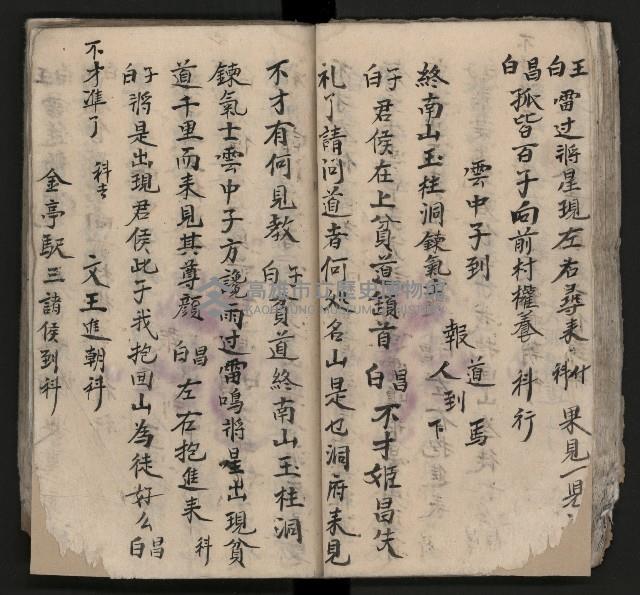 王白 雷过將星現左右尋来 科 果見一
昌白 孤皆百子向前村權養 科行
雲中子到 報道人到下
終南山玉柱洞鍊氣
子白 君侯在上貧道頚首 昌白 不才姬昌失
礼了請问道者何姓名山是乜洞府来見
不才有何見教 子白 貧道終南山玉柱洞
鍊氣士雲中子方纔雨过雷鳴將星出現貧
道千里而来見其尊顔 昌白 左右抱進来 科
子白 將是出現君侯此子我抱回山為徒好么 昌白
不才準了 科 文王進朝科
金亭馹三諸侯到科
高雄市立歷史博物館
KAOHSIUNG MUSEUM OF HISTORY